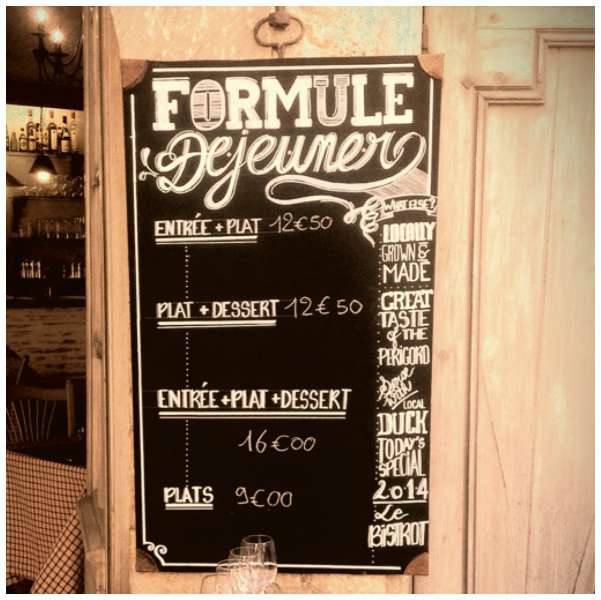 FORMULE
Dejeuner
ENTRÉE + PLAT 12€50
PLAT + DESSERT 12€50
ENTRÉE + PLAT + DESSERT
16€00
PLATS 9€00
WHAT ELSE?
LOCALLY
GROWN &
MADE
GREAT
TASTE
of THE
PERIGORD
LOCAL
DUCK
TODAY'S
SPECIAL
2014
Le
BISTROT